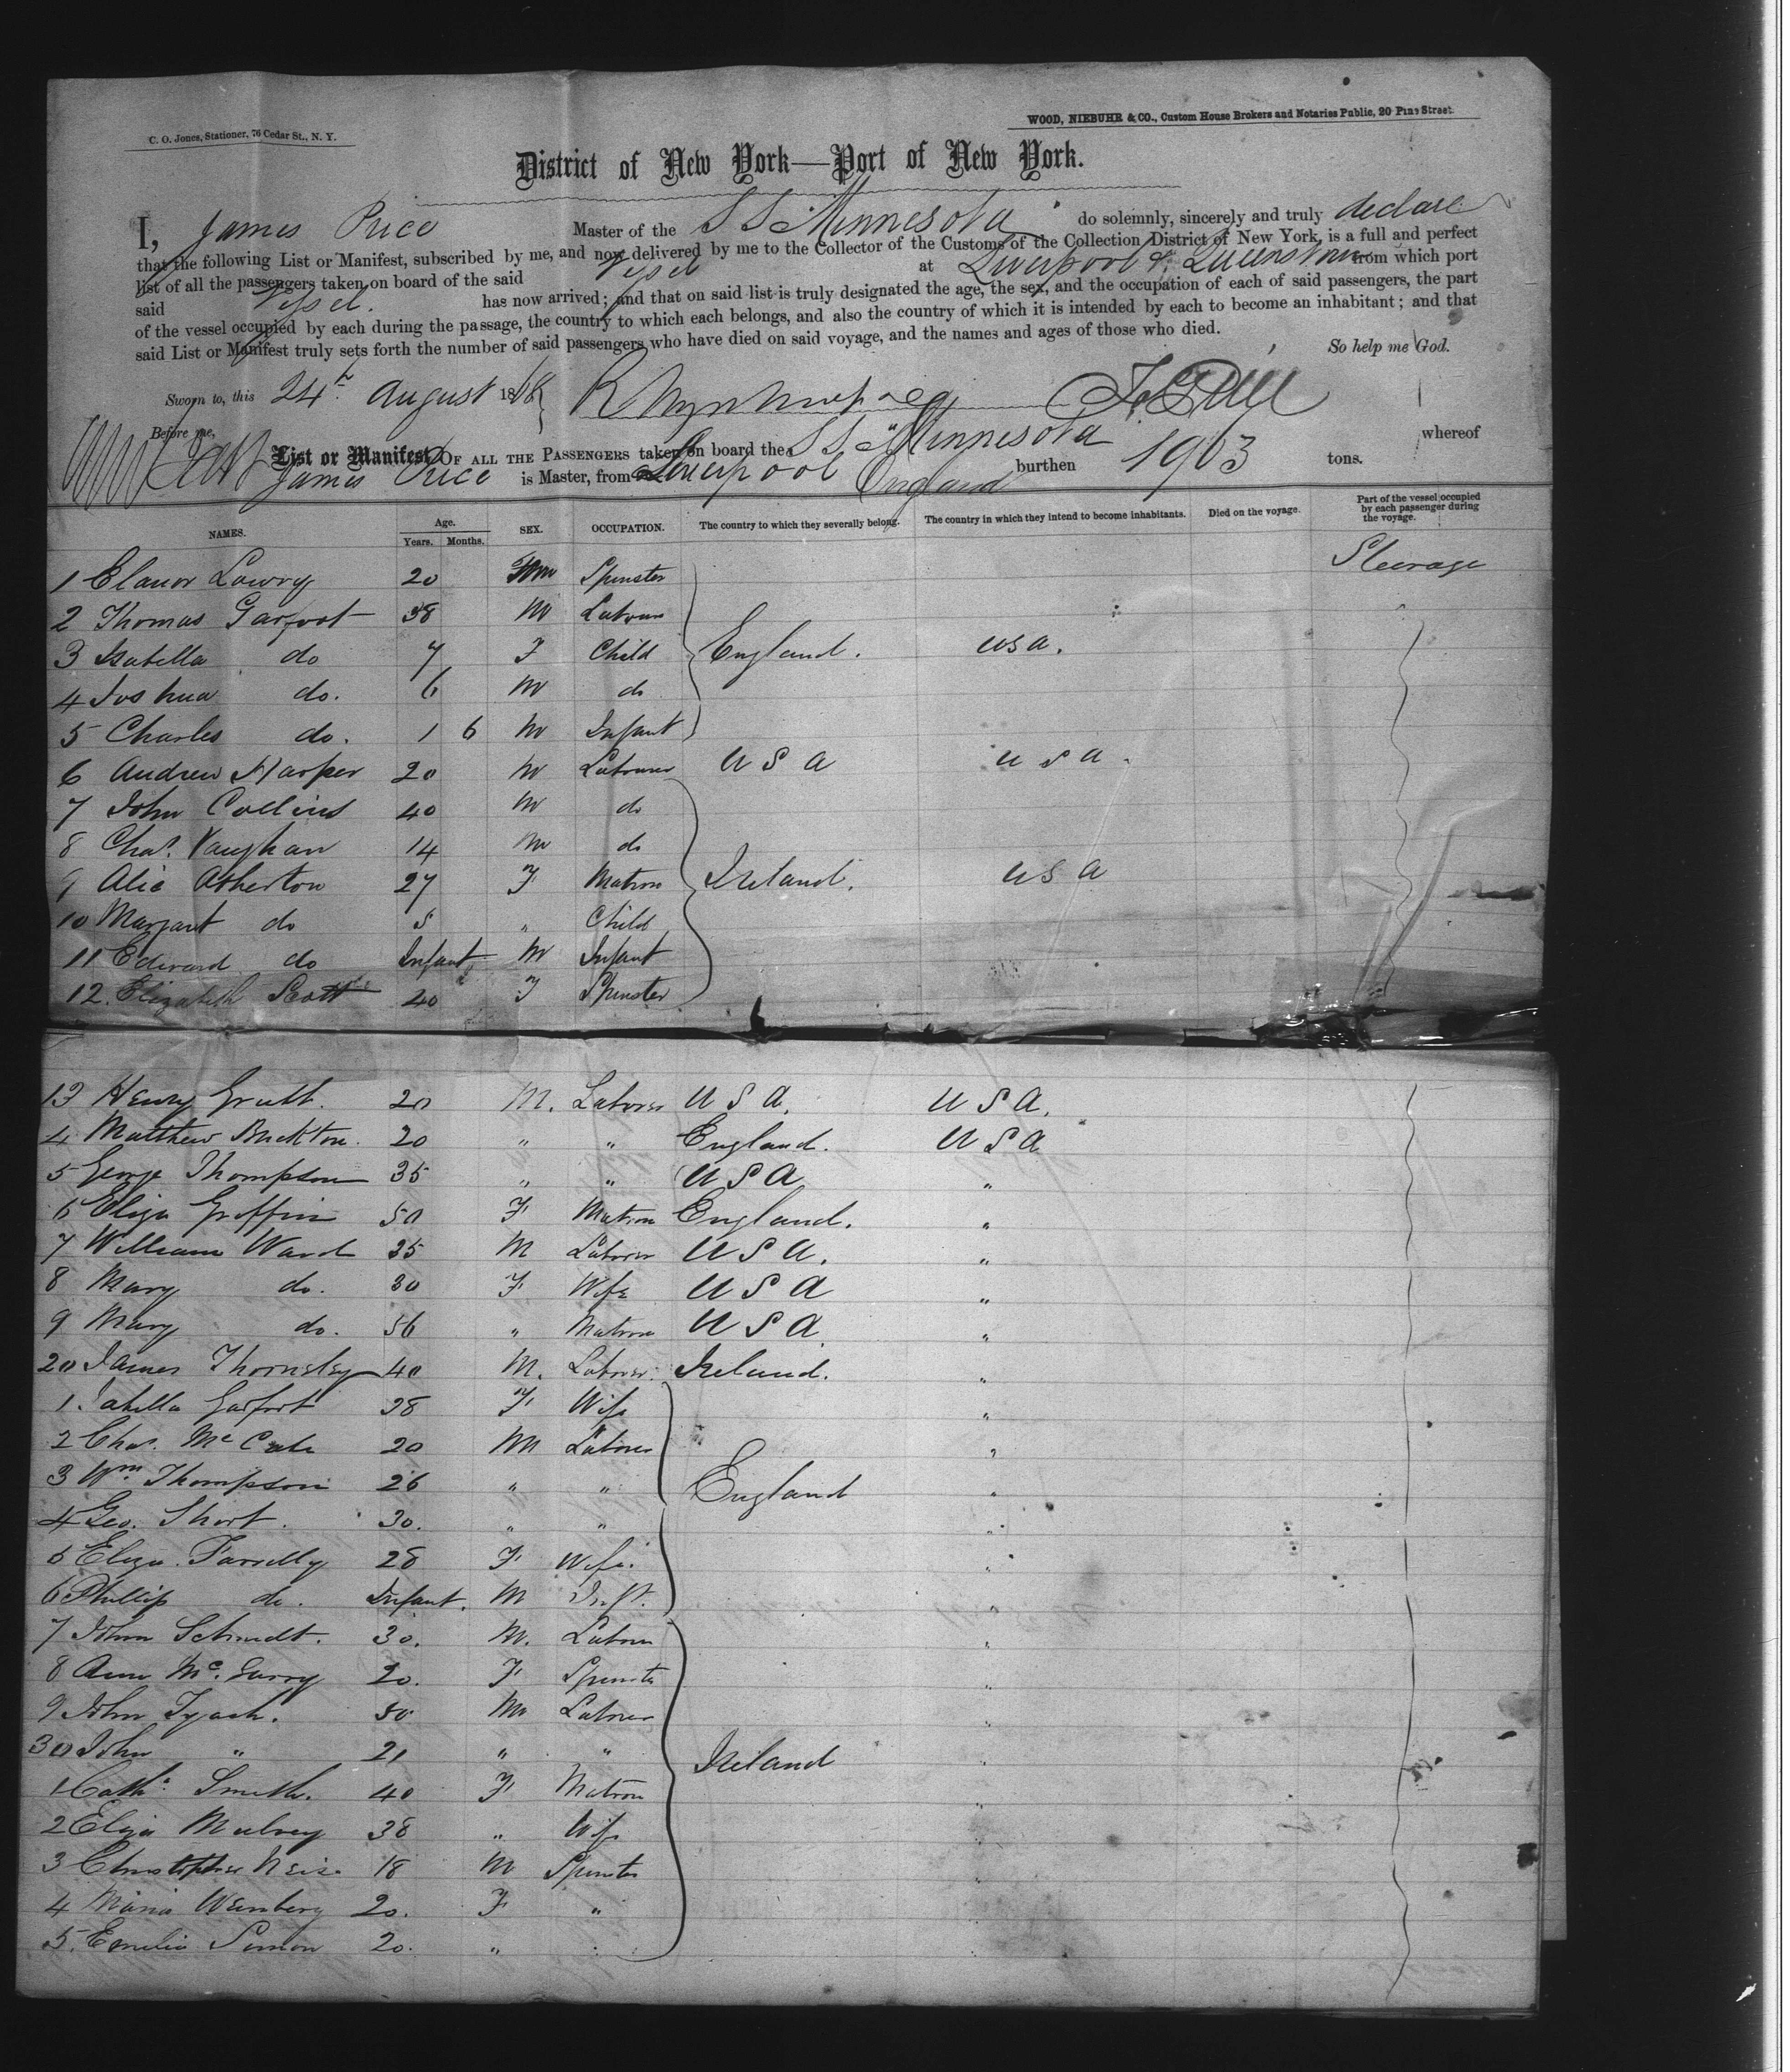 C. O. Jones, Stationer, 76 Cedar St., N. Y.
WOOD, NIEBUHR & CO., Custom House Brokers and Notaries Public, 20 Pine Street.
District of New York—Port of New York.
I, James Price Master of the S S Minnesota do solemnly, sincerely and truly declare
that the following List or Manifest, subscribed by me, and now delivered by me to the Collector of the Customs of the Collection District of New York, is a full and perfect
list of all the passengers taken on board of the said Vessel at Liverpool & Queenstown from which port
said Vessel. has now arrived; and that on said list is truly designated the age, the sex, and the occupation of each of said passengers, the part
of the vessel occupied by each during the passage, the country to which each belongs, and also the country of which it is intended by each to become an inhabitant; and that
said List or Manifest truly sets forth the number of said passengers who have died on said voyage, and the names and ages of those who died.
So help me God.
Sworn to, this 24th August 1868
Before me,
List or Manifest OF ALL THE PASSENGERS taken on board the S S Minnesota whereof
James Price is Master, from Liverpool England burthen 1963 tons.
NAMES. Age. Years. Months. SEX. OCCUPATION. The country to which they severally belong. The country in which they intend to become inhabitants. Died on the voyage. Part of the vessel occupied by each passenger during the voyage.
1 Elanor Lowry 20 Spinster Steerage
2 Thomas Garfoot 38 M Labourer
3 Isabella do 7 F Child England. USA.
4 Joshua do. 6 M do
5 Charles do. 1 6 M Infant
6 Andrew Harper 20 M Labourer U S A U S A.
7 John Collins 40 M do
8 Chas. Vaughan 14 M do
9 Alic Atherton 27 F Matron Ireland. U S A
10 Margaret do 5 " Child
11 Edward do Infant M Infant
12. Elizabeth Scott 40 F Spinster
13 Henry 20 M. Laborer U S A. U S A.
4 Matthew Buckton. 20 " " England. U S A
5 George Thompson 35 " " U S A "
6 Eliza Griffin 50 F Matron England. "
7 William Ward 35 M Laborer U S A. "
8 Mary do. 30 F Wife U S A "
9 Mary do. 56 " Matron U S A "
20 James Thornsley 40 M. Laborer. Ireland. "
1 Isabella Garfoot 38 F Wife "
2 Chas. McCabe 20 M Laborer "
3 Wm Thompson 26 " " England "
4 Geo. Short. 30. " " "
5 Eliza Farrelly 28 F Wife. "
6 Phillip do. Infant. M Inft. "
7 John Schmidt. 30. M. Laborer "
8 Ann Mc. 20. F Spinster "
9 John 50 M Laborer "
30 John " 21 " " Ireland "
1 Cath. Smith. 40 F Matron "
2 Eliza Mulvey 38 " Wife "
3 Christopher 18 M Spinster "
4 Maria Weinberg 20. F " "
5. Emelia Simon 20. " "